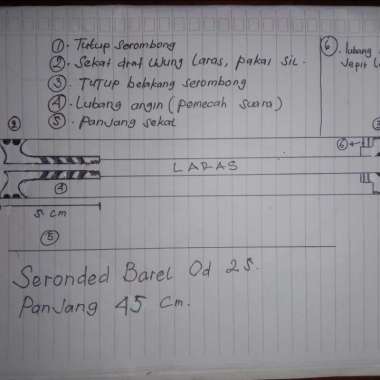 ① Tutup serombong
② Sekat draf Ujung laras, pakai sil.
③ Tutup belakang serombong
④ Lubang angin (pemecah suara)
⑤ Panjang sekat
⑥ lubang
Jepit
②
⑥
LARAS
④
5 cm
⑤
Seronded Barel Od 25.
Panjang 45 cm.